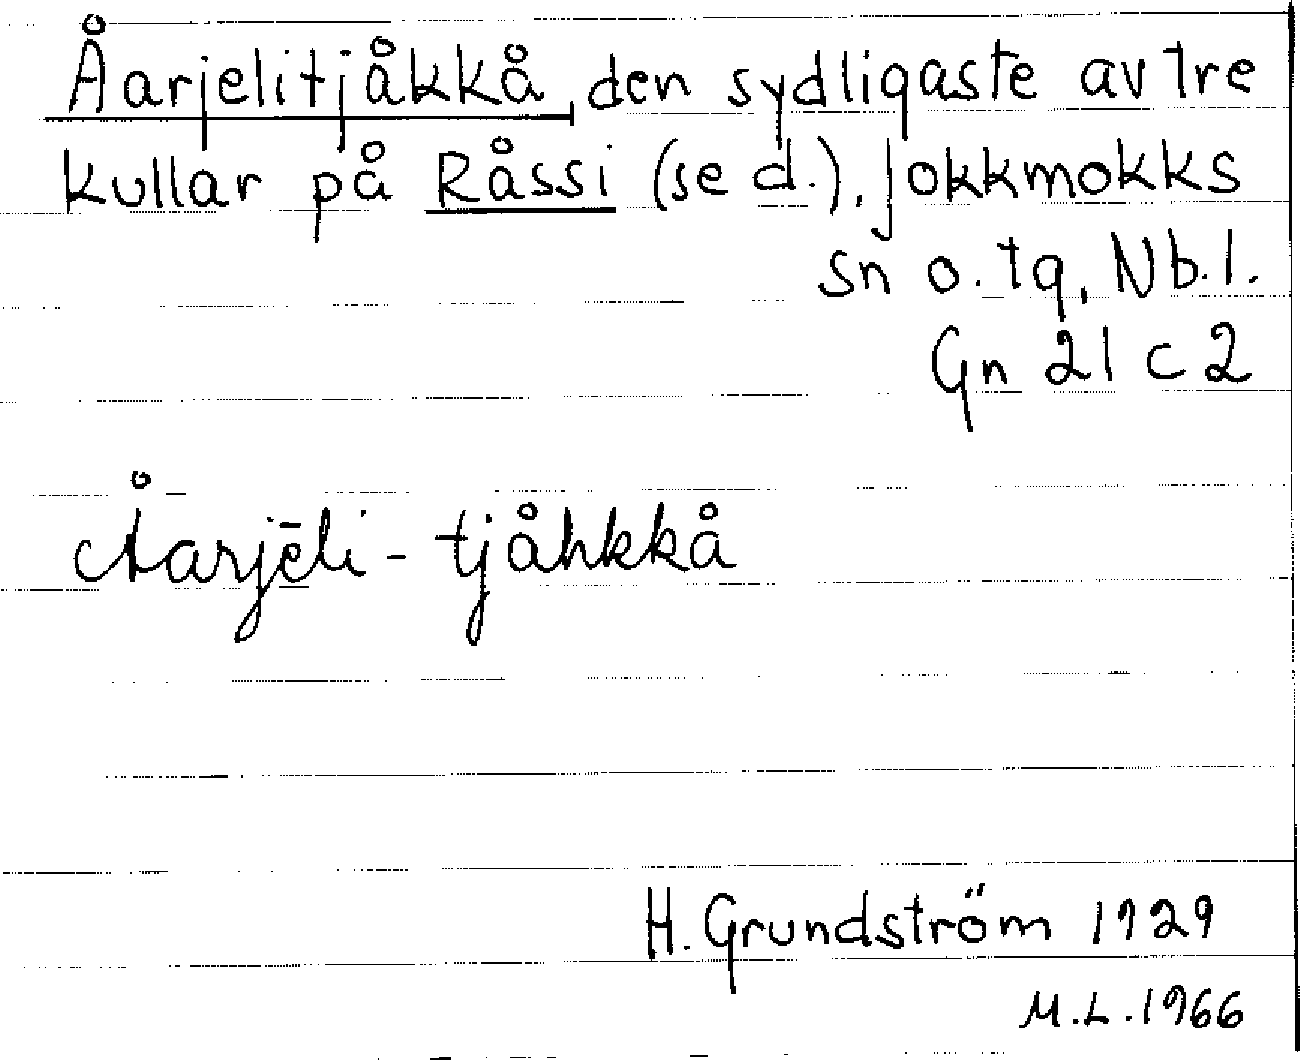 Åarjelitjåkkå, den sydligaste av tre
kullar på Råssi (se d.), Jokkmokks
sn o. tg, Nb. l.
Gn 21 c 2
Åarjēli-tjåhkkå
H. Grundström 1929
M.L. 1966